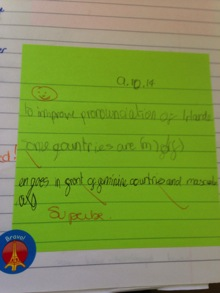 9.10.14
to improve pronunciation of islands
and countries are (m) of (f)
en goes in front of feminine countries and masculine
au
Superbe
Bravo!